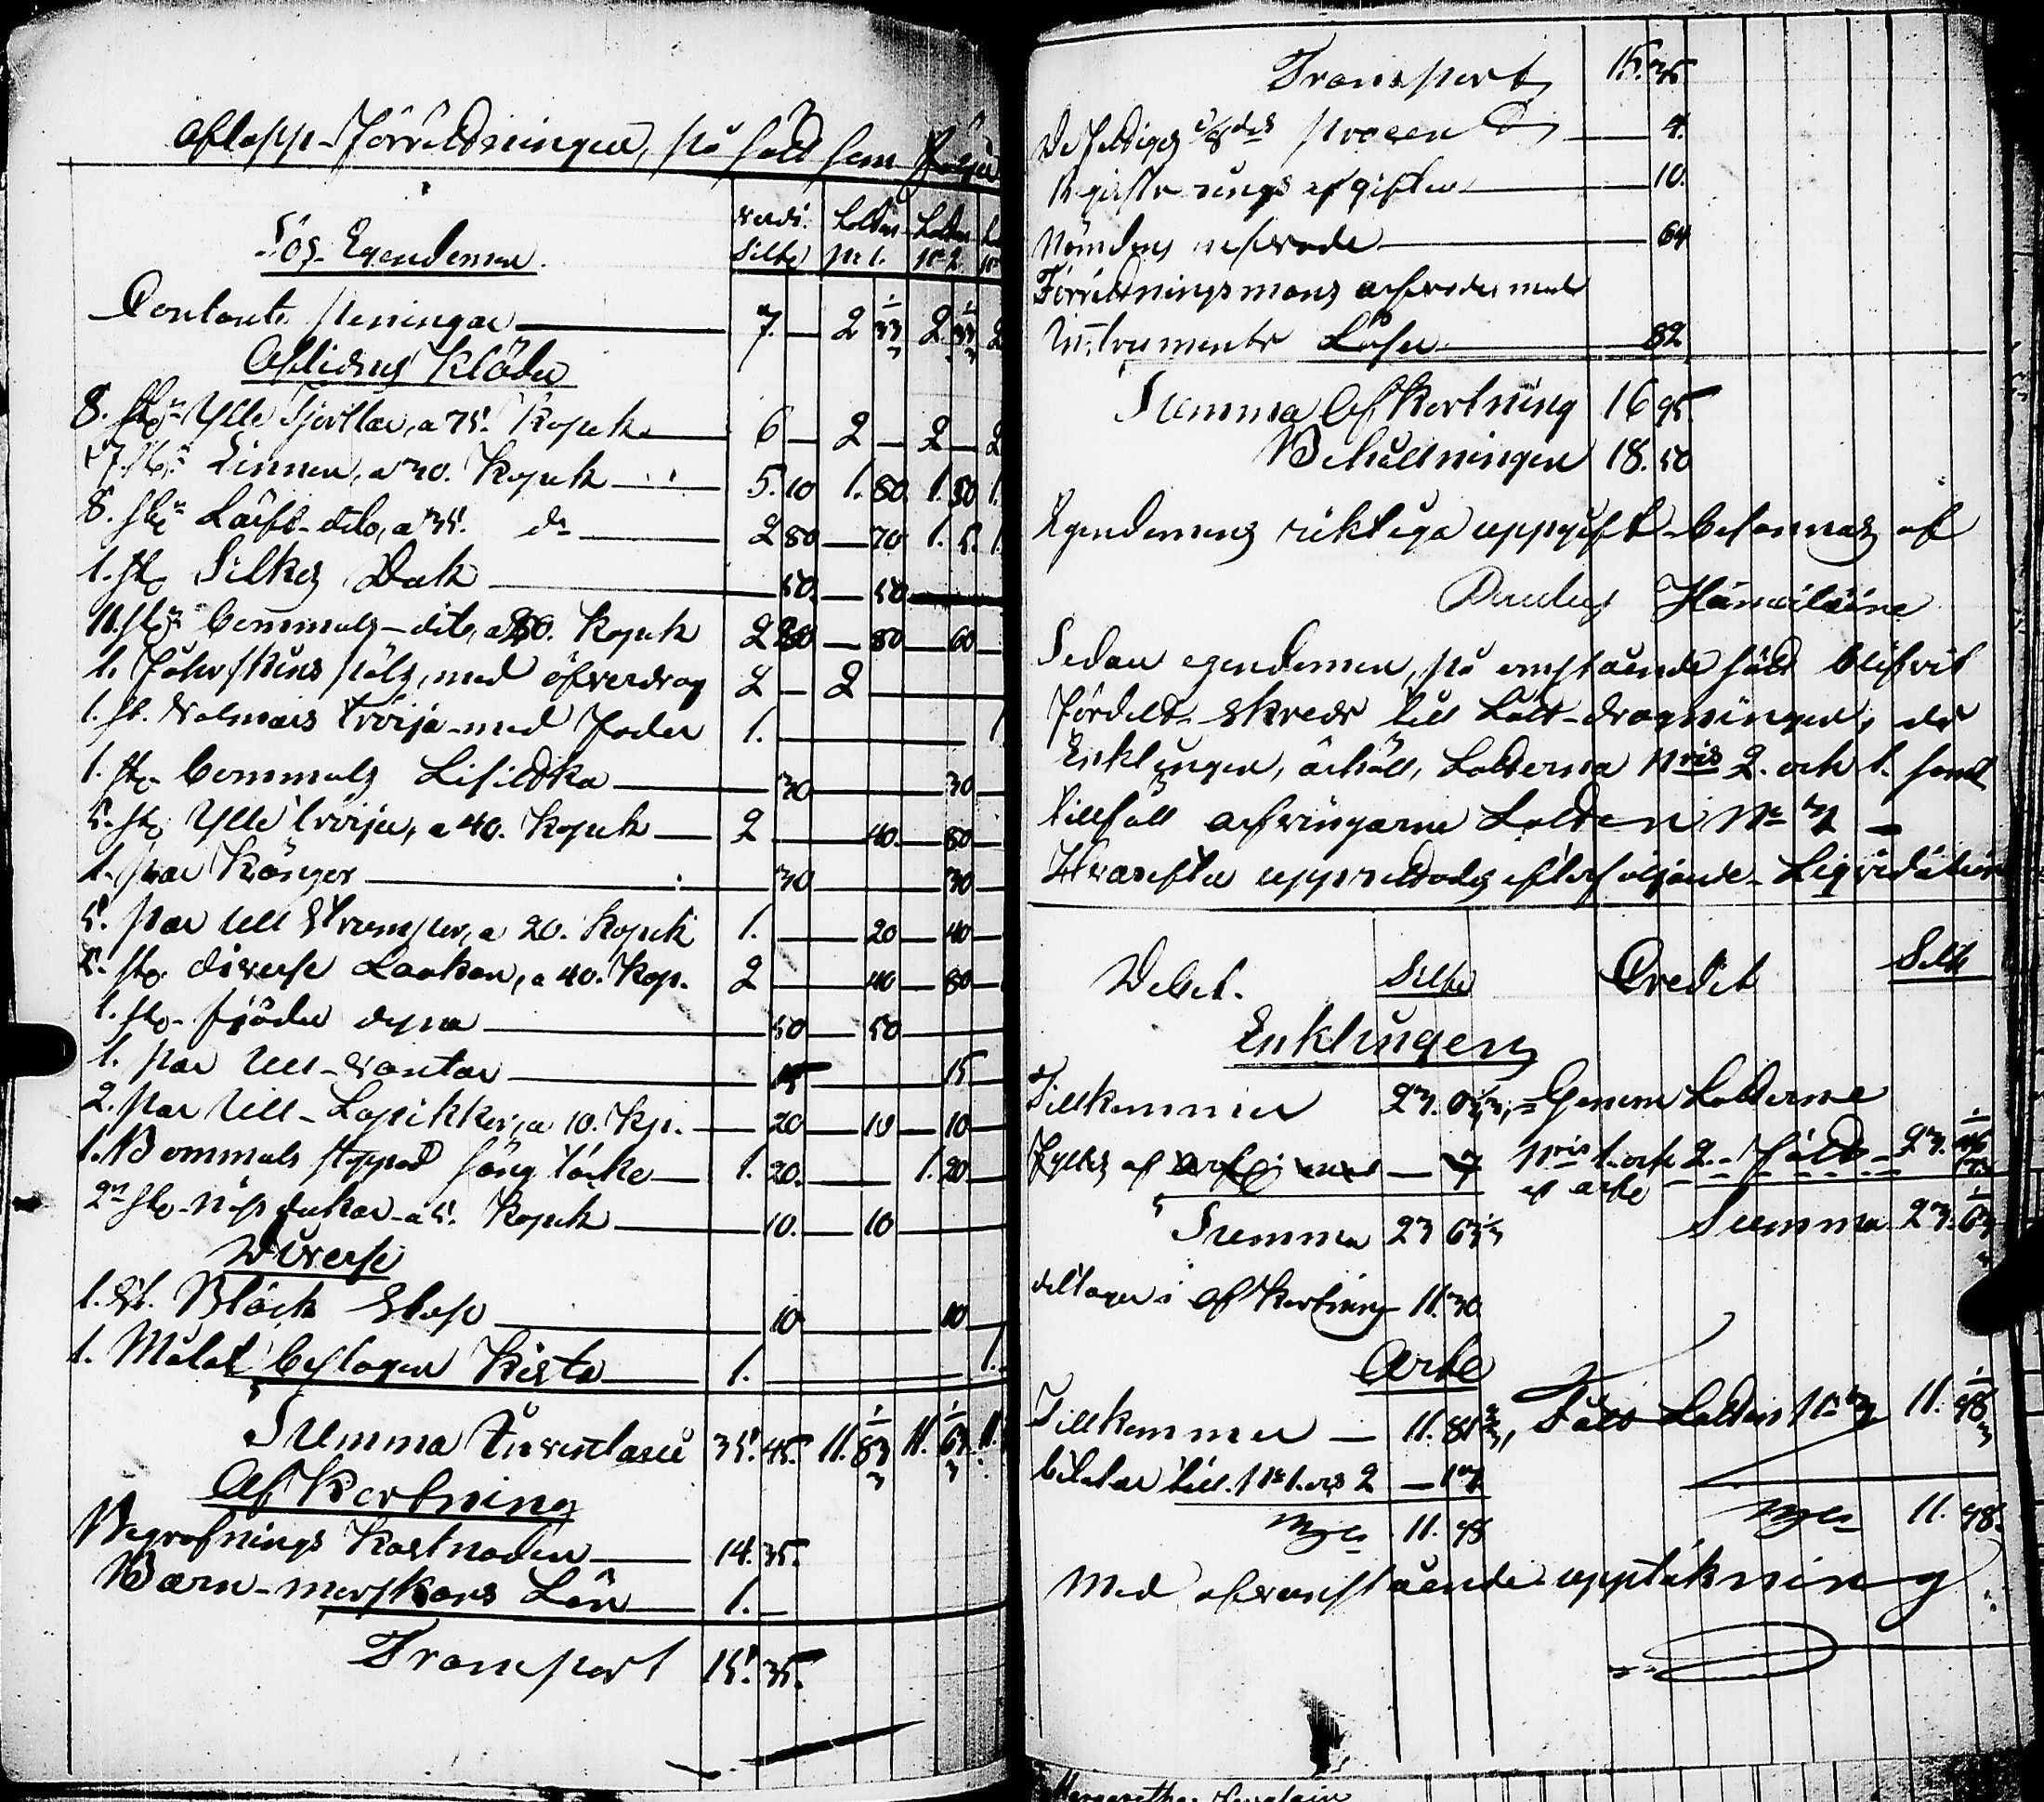 aflopp förrättningen, på sätt som följer
Lös Egendomen. verdi: Silfver Lotten No 1. Lotten No 2.
Contante Peningar 7. — 2 33 1/3 2. 33 1/3 2
Aflidnes Kläder
8. st: Ylle Tjortlar, a 75. Kopek 6 — 2 — 2 — 2
17. st: Linnen, a 30. Kopek 5. 10 1. 80 1. 50 1.
8. st: Läift dito, a 35. do 2 80 — 70 1. 5. 1.
1. st: Silkes Duk 50. — 50
11. st: bommuls dito, a 20. Kopek 2 20 — 80 — 60
1. Fåhrskins päls, med öfverdrag 2 — 2
1. st. Valmars tröija med foder 1. 1
1. st: bommuls Lifildka 30 30
5. st: Ylle tröijor, a 40. Kopek 2 40. 80
1. par Kängor 30 30
5. par Ull Strumpor, a 20. Kopek 1. 20 40
5. st: diverse Laakan, a 40. Kop. 2 40 80
1. st: fjäder dyna 50 50
1. par Ull-vantar 15 15
2. par Ull-Lapikker, a 10. Kp. 20 10 10
1. Bommuls stoppad säng täcke 1. 20. 1. 20
2 st: näsdukar a 5. Kopek 10. 10
Diverse
1. st. Bläck Skop 10 10
1. Målat beslagen Kista 1. 1.
Summa Inventarii 35. 45. 11. 83 1/3 11. 63 1/3 11.
Afkortning
Begrafnings Kostnaden 14. 35.
Barn-morskans Lön 1. —
Transport 15. 35.
Transport 15. 35.
De fattiges 1/8 dels procent 4.
Registrerings afgiften 10.
Nämdens arfvode 64
Förrättningsmans arfvode med
Instruments Lösen 82
Summa Afkortning 16 95.
Behållningen 18. 50
Egendomens riktiga uppgift besannas af
Paulus Hämäläine
Sedan egendomen, på omstående sätt blifvit
fördelt skreds till Lott-dragningen, der
Enklingen, erhöll, Lotterna Nris 2. och 1. samt
tillföll arfvingarne Lotten No 3
Hvarefter upprättades efterföljande Liqvidation
Debet. Silfver Credit Silfv
Enklingen
Tillkommer 23. 63 1/3, Genom Lotterne
fylles af arfvingarne — Nris 1. och 2. fådt 23. 46 1/3
af arfve 17
Summa 23 63 1/3 Summa 23. 63 1/3
deltager i afkortning 11. 30
Arfve
Tillkommer — 11. 81 2/3, Fått Lotten No 3 11. 98 1/3
betalar till No 1. och 2 — 17
11. 98 11. 98.
Med ofvanstående uppteckning